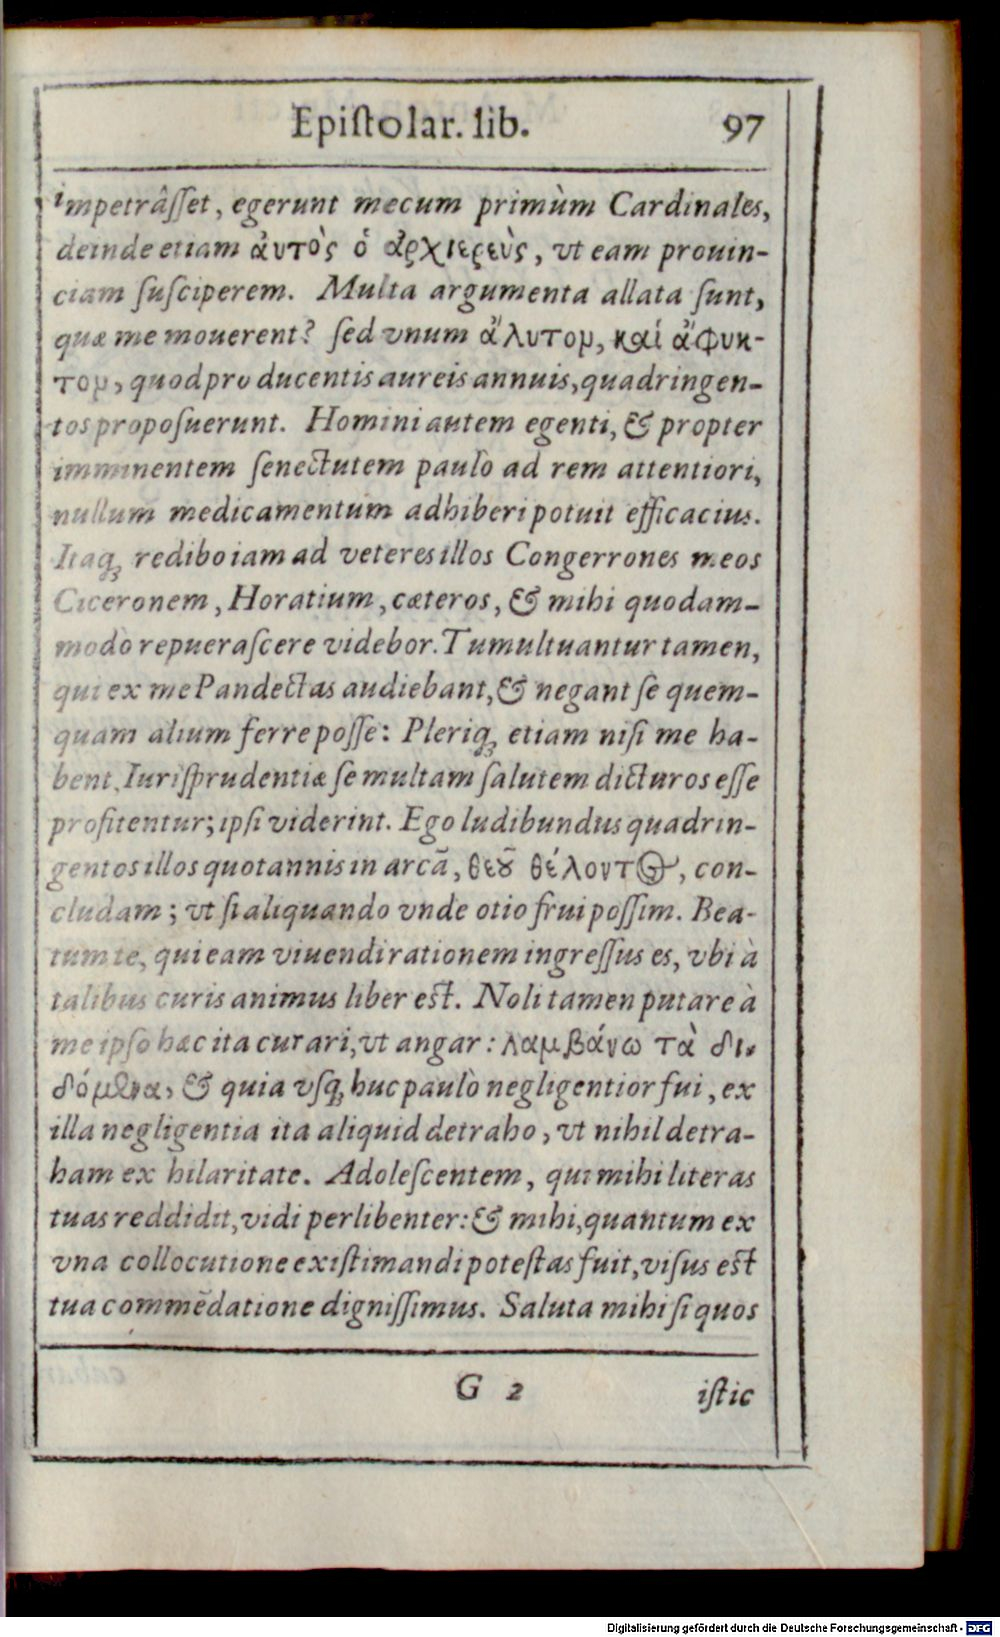 Epiſtolar. lib. 97
impetrâſſet, egerunt mecum primùm Cardinales,
deinde etiam ἀυτὸς ὁ ἀρχιερεὺς, vt eam prouin-
ciam ſuſciperem. Multa argumenta allata ſunt,
quæ me mouerent? ſed vnum ἄλυτομ, καί ἄφυκ-
τομ, quod pro ducentis aureis annuis, quadringen-
tos propoſuerunt. Homini autem egenti, & propter
imminentem ſenectutem paulò ad rem attentiori,
nullum medicamentum adhiberi potuit efficacius.
Itaq́ꝫ redibo iam ad veteres illos Congerrones meos
Ciceronem, Horatium, cæteros, & mihi quodam-
modo repueraſcere videbor. Tumultuantur tamen,
qui ex me Pandectas audiebant, & negant ſe quem-
quam alium ferre poſſe: Pleriq́ꝫ etiam niſi me ha-
bent, Iuriſprudentiæ ſe multam ſalutem dicturos eſſe
profitentur; ipſi viderint. Ego ludibundus quadrin-
gentos illos quotannis in arcā, θεȣ͂ θέλοντ⊙, con-
cludam; vt ſi aliquando vnde otio frui poſſim. Bea-
tum te, qui eam viuendi rationem ingreſſus es, vbi à
talibus curis animus liber eſt. Noli tamen putare à
me ipſo hæc ita curari, vt angar: λαμβάνω τὰ δι-
δόμενα, & quia vſq́ꝫ huc paulò negligentior fui, ex
illa negligentia ita aliquid detraho, vt nihil detra-
ham ex hilaritate. Adoleſcentem, qui mihi literas
tuas reddidit, vidi perlibenter: & mihi, quantum ex
vna collocutione exiſtimandi poteſtas fuit, viſus eſt
tua commēdatione digniſſimus. Saluta mihi ſi quos
G 2 iſtic
Digitalisierung gefördert durch die Deutsche Forschungsgemeinschaft - DFG